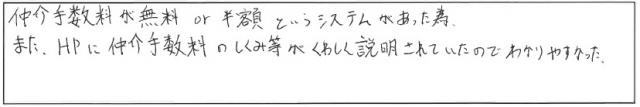 仲介手数料が無料 or 半額 というシステムがあった為.
また、HPに仲介手数料のしくみ等がくわしく説明されていたのでわかりやすかった.